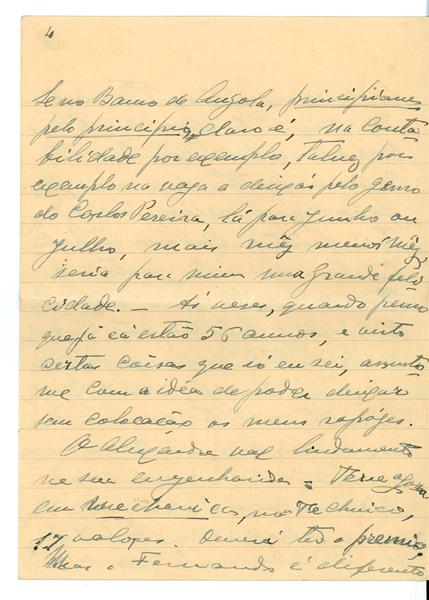 4
se no Banco de Angola, principiando
pelo principio, claro é, na conta
bilidade por exemplo, talvez por
exemplo na vaga a deixar pelo genro
do Carlos Pereira, lá para Junho ou
Julho, mais mêz menos mêz,
seria para mim uma grande feli
cidade. — Ás vezes, quando penso
que já cá estão 56 annos, e visto
certas coisas que só eu sei, assusta-
me com a idéa de poder deixar
sem colocação os meus rapazes.
O Alexandre vae lindamente
na sua engenharia = Teve agora
em mechanica, no Technico,
17 valores. Deverá ter o premio.
Mas o Fernando é diferente